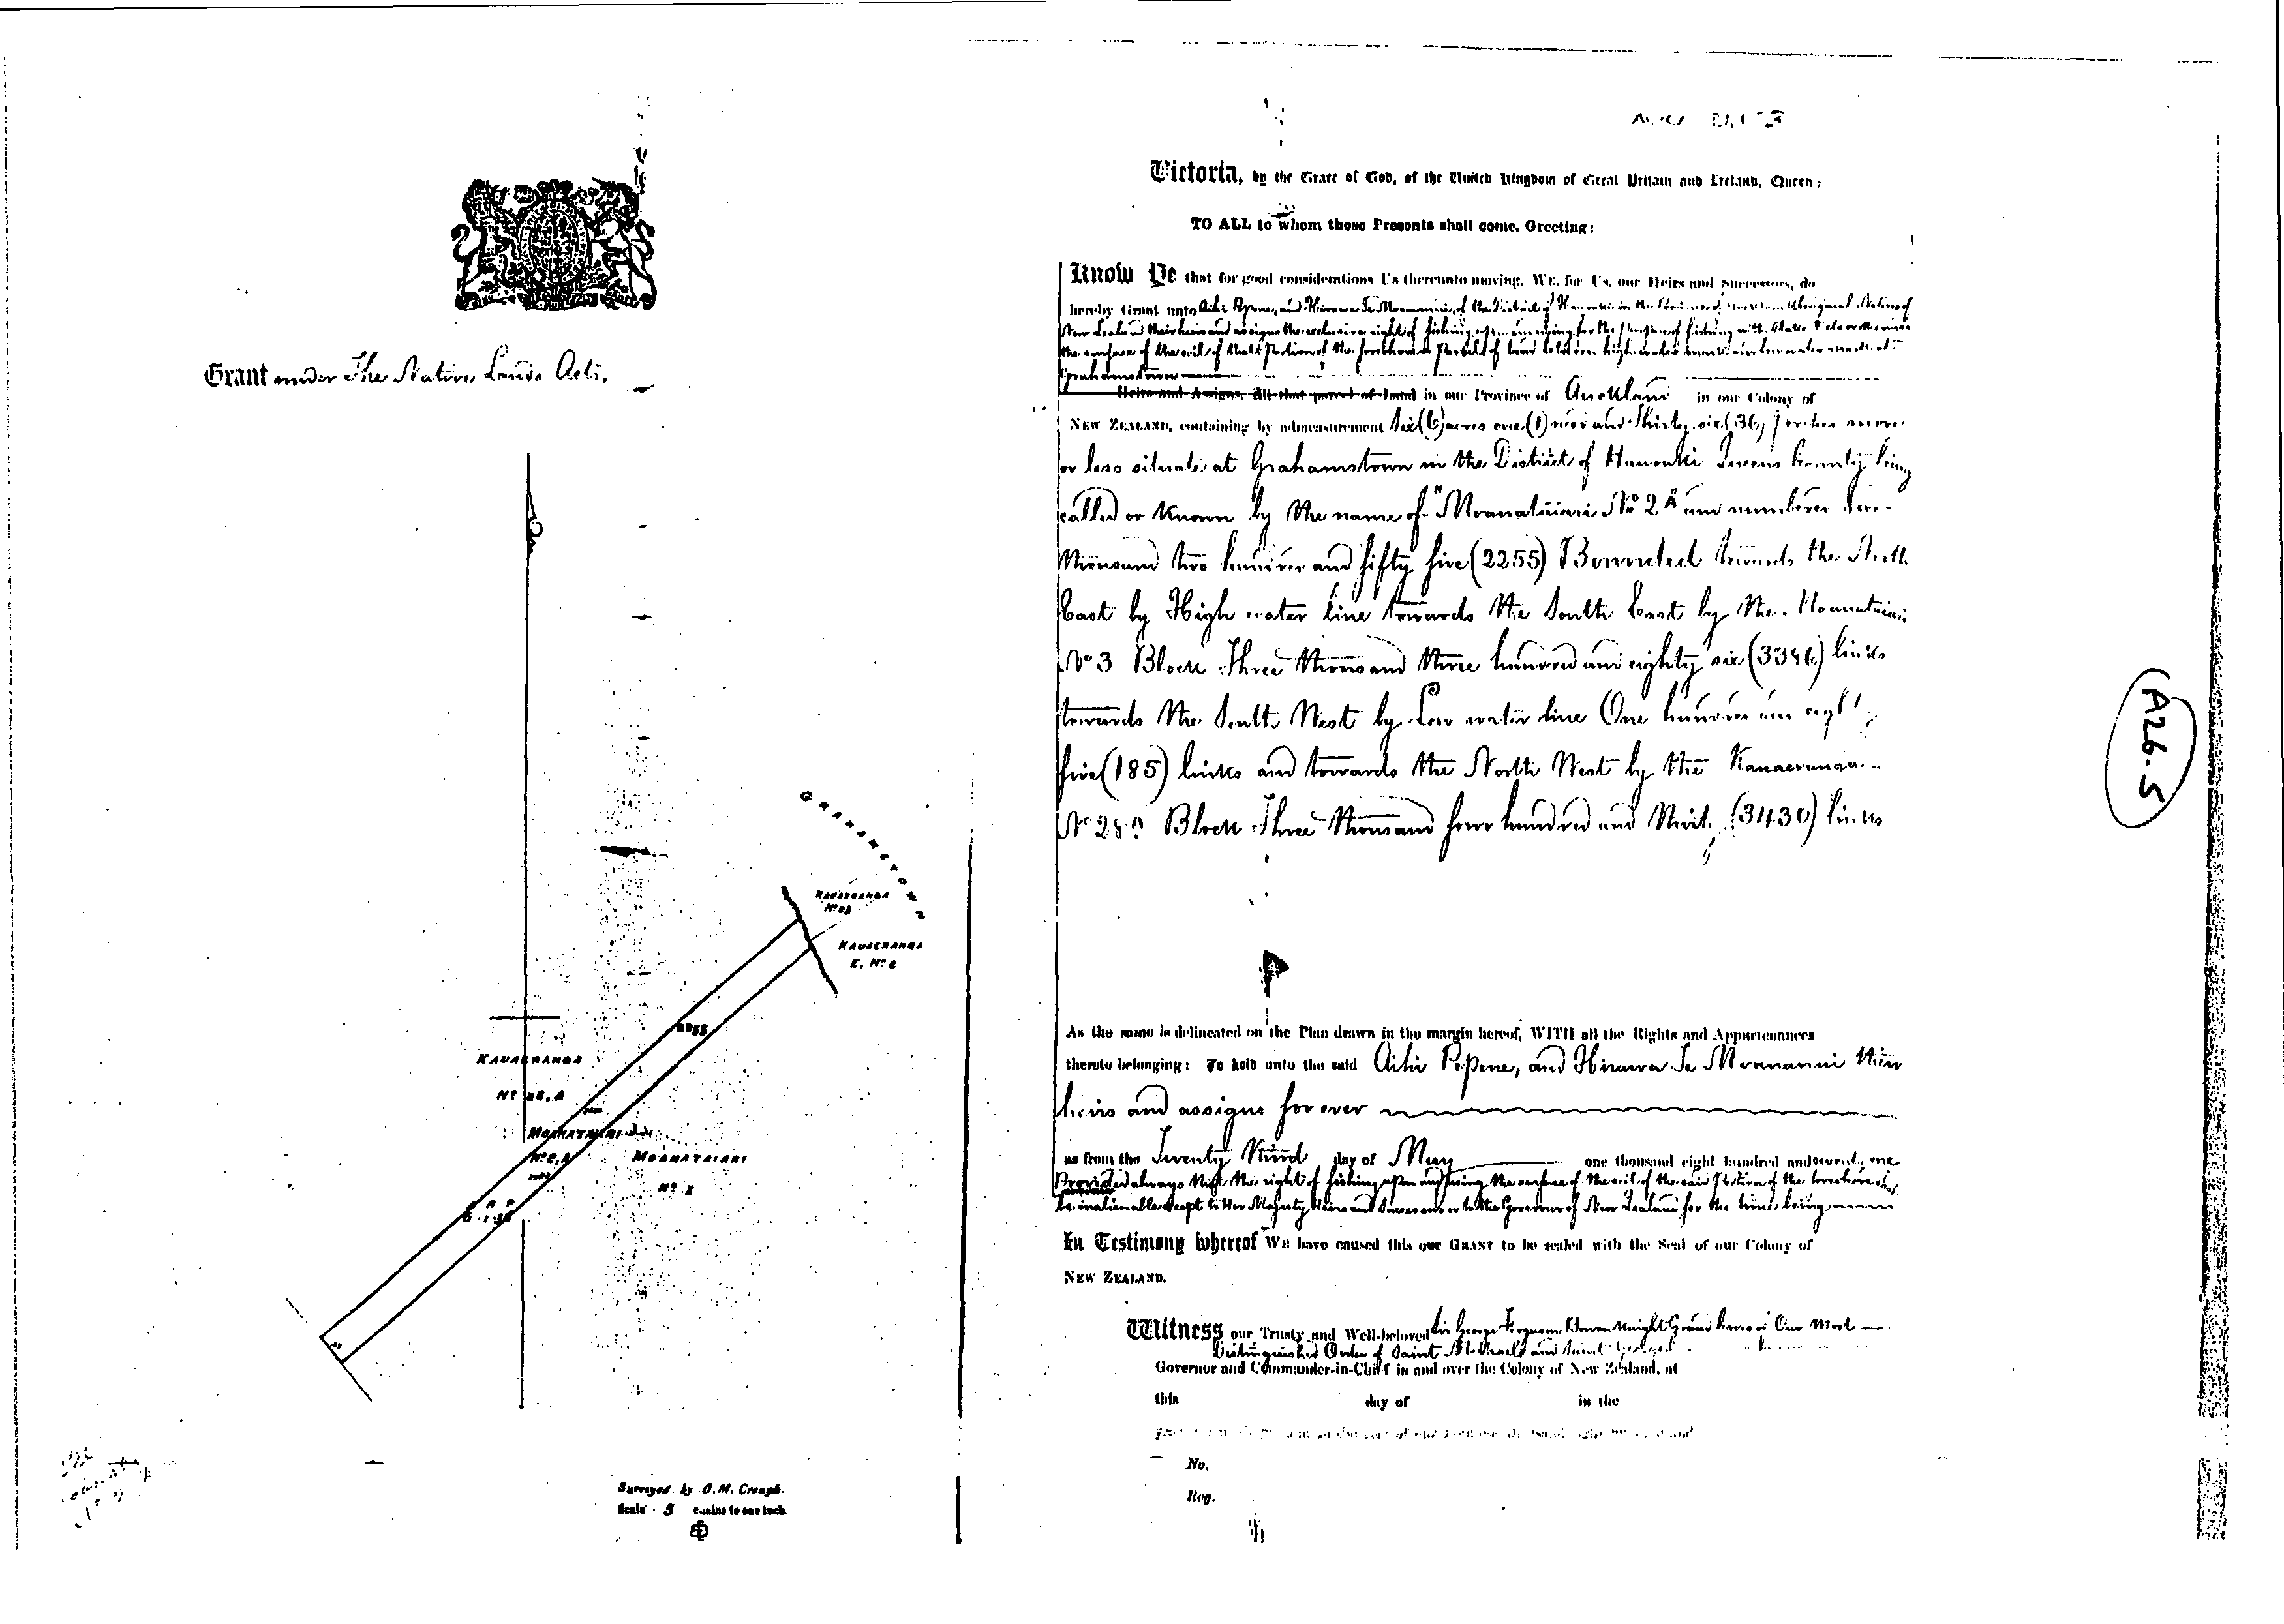 Grant under The Native Lands Acts.
GRAHAMSTOWN
KAUAERANGA
KAUAERANGA
E. No
2255
KAUAERANGA
No 28.A
MOANATAIARI
No 2.A
MOANATAIARI
No
A R P
6.1.36
Surveyed by O.M. Creagh.
Scale 5 chains to one inch.
Victoria, by the Grace of God, of the United Kingdom of Great Britain and Ireland, Queen:
TO ALL to whom these Presents shall come, Greeting:
Know Ye that for good considerations Us thereunto moving, We, for Us, our Heirs and Successors, do
hereby Grant unto Aihi Pepene, and Hirawa Te Moananui, of the District of Hauraki in the Province of Aboriginal Natives of
New Zealand their heirs and assigns the exclusive right of fishing upon and for the purpose of fishing
the surface of the soil of that Portion of the foreshore or Parcel of land between high water mark and low water mark at
Grahamstown
Heirs and Assigns, All that parcel of Land in our Province of Auckland in our Colony of
New Zealand, containing by admeasurement Six (6) acres one (1) rood and Thirty six (36) perches more
or less situate at Grahamstown in the District of Hauraki Queens County being
called or known by the name of "Moanataiari No 2A and numbered Two
Thousand two hundred and fifty five (2255) Bounded towards the North
East by High water line towards the South East by the Moanataiari
No 3 Block Three thousand three hundred and eighty six (3386) links
towards the South West by Low water line One hundred and eighty
five (185) links and towards the North West by the Kauaeranga
No 28A Block Three Thousand four hundred and thirty (3430) links
As the same is delineated on the Plan drawn in the margin hereof, WITH all the Rights and Appurtenances
thereto belonging: To hold unto the said Aihi Pepene, and Hirawa Te Moananui their
heirs and assigns for ever
as from the Twenty third day of May one thousand eight hundred and seventy one
Provided always that the right of fishing upon and using the surface of the soil of the said Portion of the foreshore shall
be inalienable except to Her Majesty Heirs and Successors or to the Governor of New Zealand for the time being
In Testimony whereof We have caused this our Grant to be sealed with the Seal of our Colony of
New Zealand.
Witness our Trusty and Well-beloved Sir George Ferguson Bowen Knight Grand Cross of Our Most
Distinguished Order of Saint Michael and Saint George
Governor and Commander-in-Chief in and over the Colony of New Zealand, at
this day of in the
No.
Reg.
A26.5